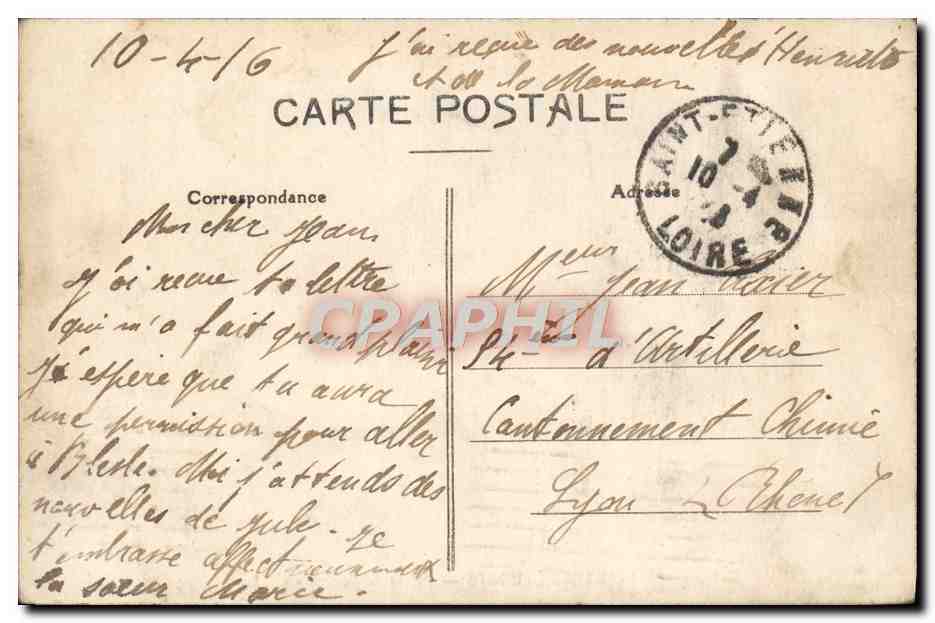 10-4-16
J'ai reçue des nouvelles d'Henriette
et de la Maman
CARTE POSTALE
SAINT-ETIENNE
7
10 - 4
16
LOIRE
Correspondance
Adresse
Mon cher Jean
J'ai reçue ta lettre
qui m'a fait grand plaisir
j'éspère que tu aura
une permission pour aller
à Blesle. Moi j'attends des
nouvelles de Jule. Je
t'embrasse affectueusement
ta sœur Marie.
Mseur Jean
54 d'Artillerie
Cantonnement Chimie
Lyon (Rhône)
CPAPHIL